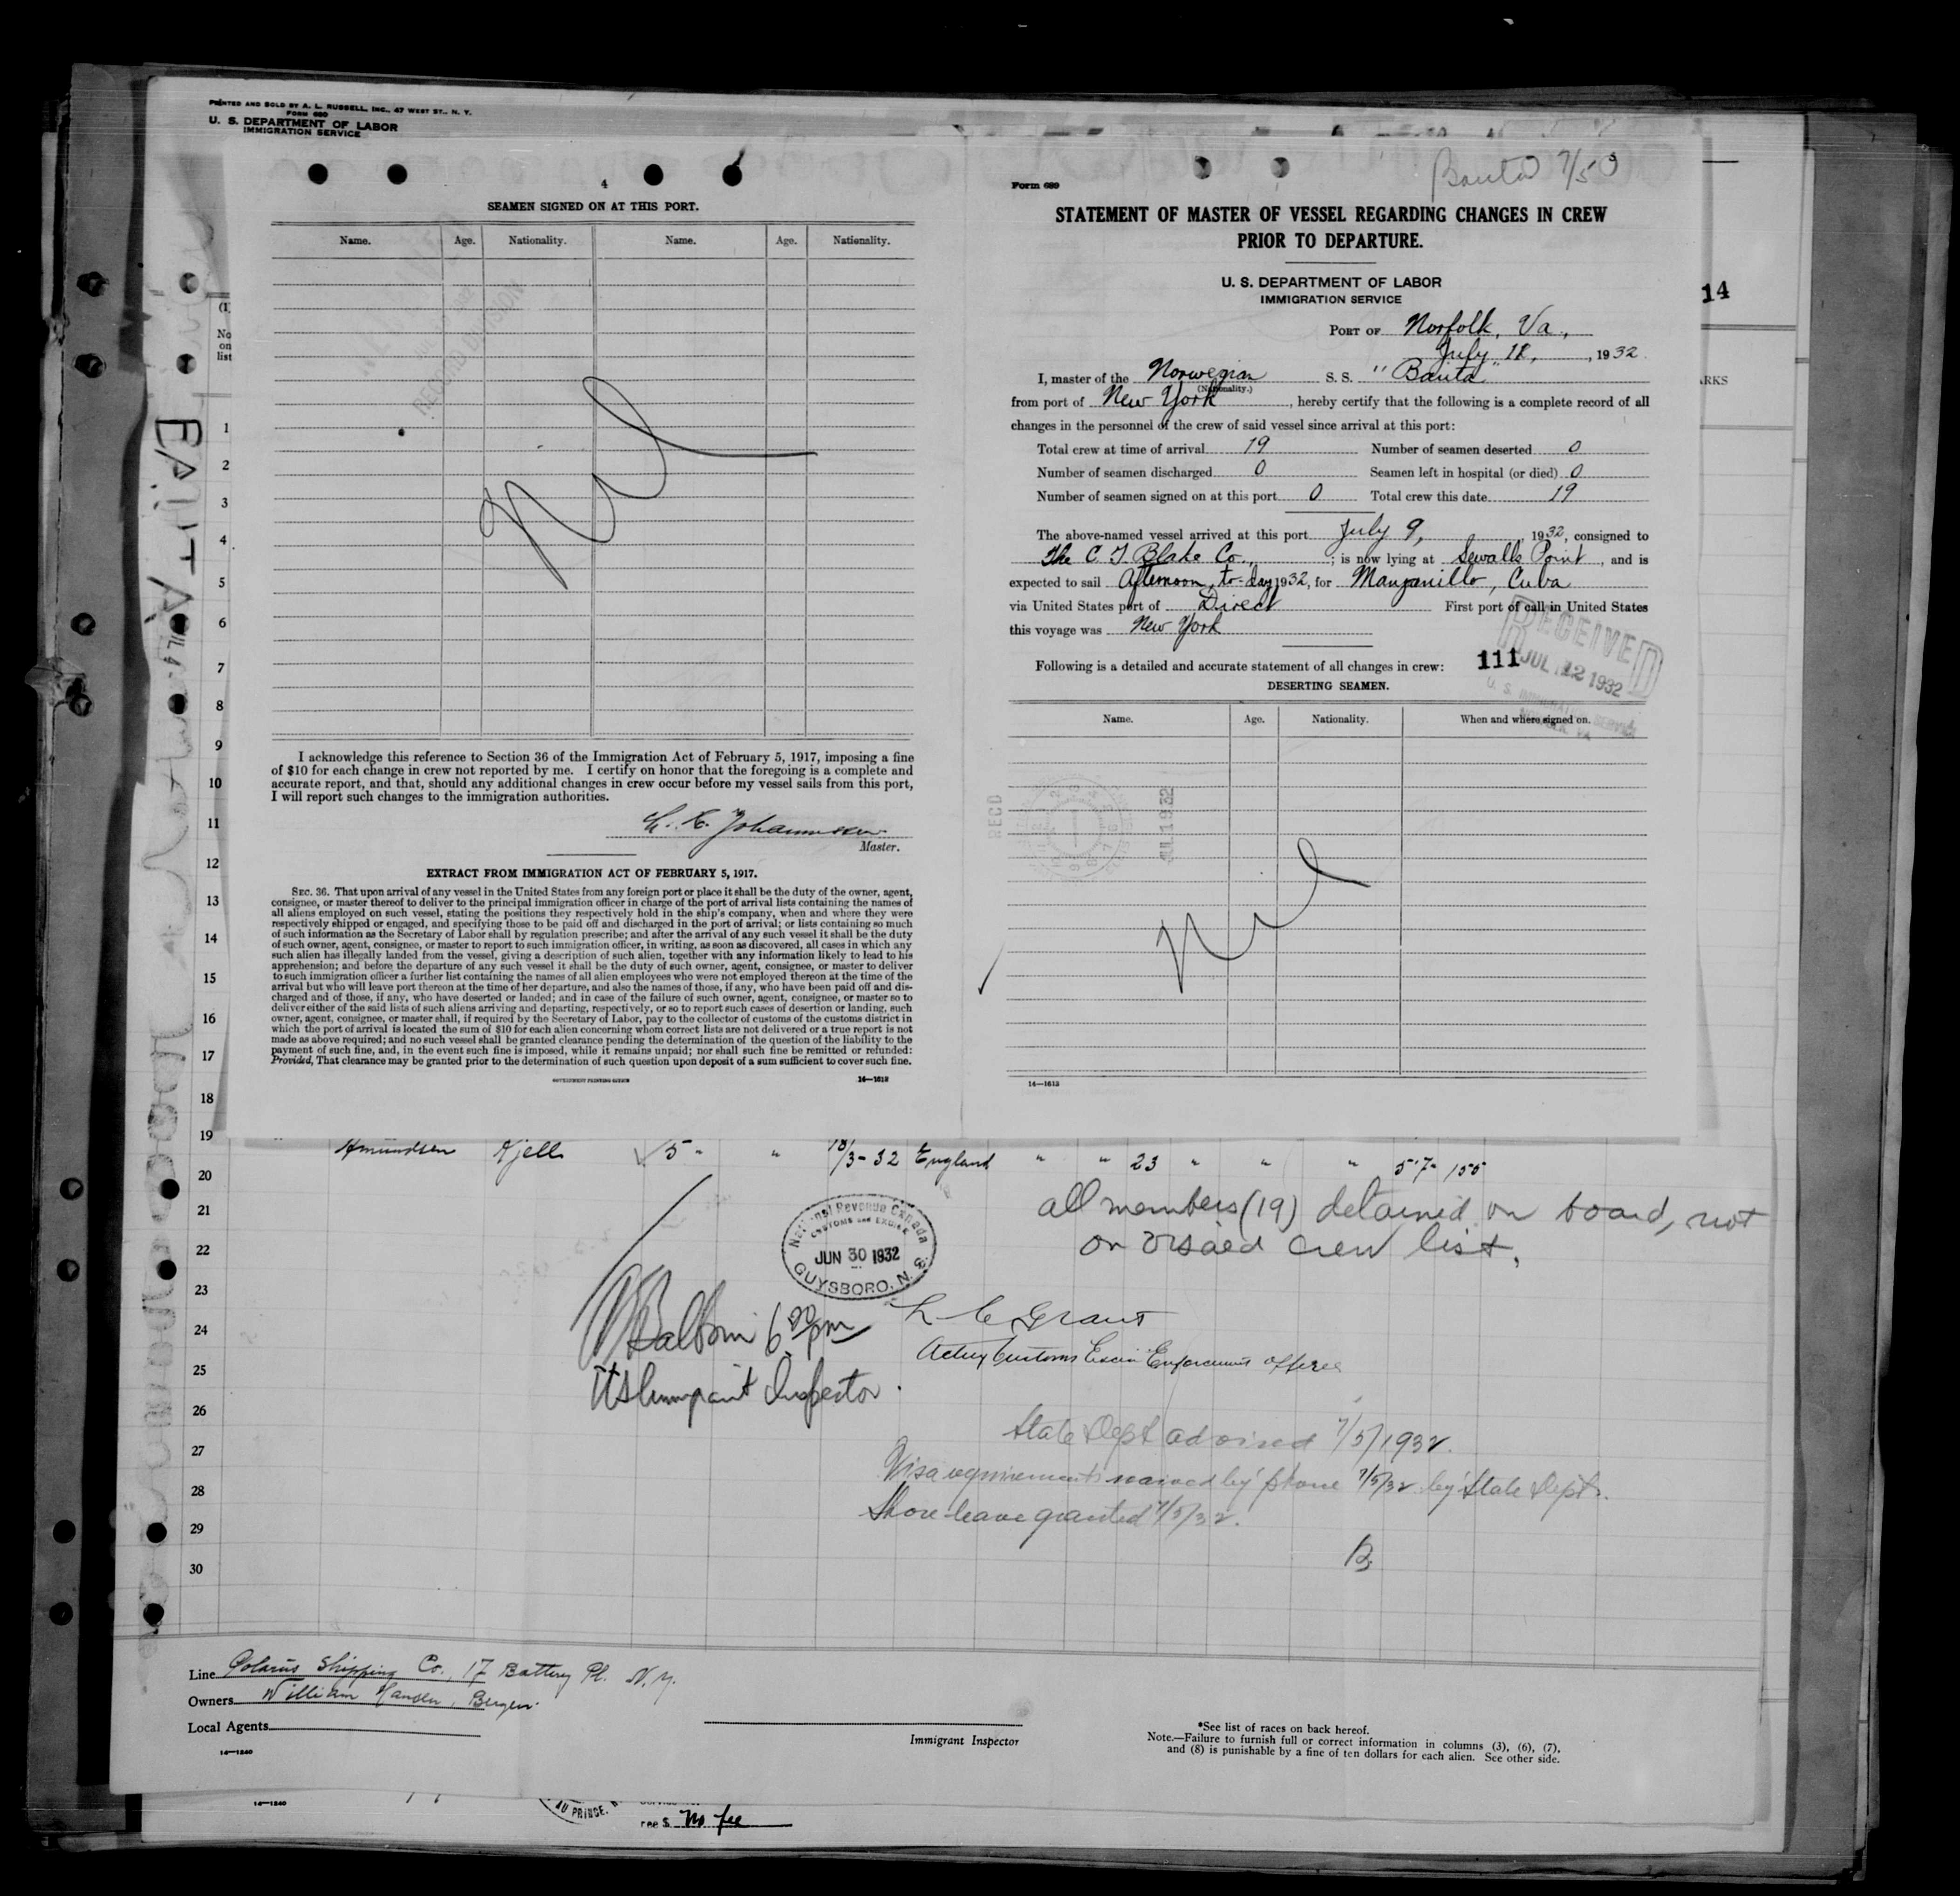 PRINTED AND SOLD BY A. L. RUSSELL, INC., 47 WEST ST., N. Y.
FORM 689
U. S. DEPARTMENT OF LABOR
IMMIGRATION SERVICE
4
SEAMEN SIGNED ON AT THIS PORT.
Name. Age. Nationality. Name. Age. Nationality.
RECORD DIVISION
Nil
I acknowledge this reference to Section 36 of the Immigration Act of February 5, 1917, imposing a fine
of $10 for each change in crew not reported by me. I certify on honor that the foregoing is a complete and
accurate report, and that, should any additional changes in crew occur before my vessel sails from this port,
I will report such changes to the immigration authorities.
Johannessen
Master.
EXTRACT FROM IMMIGRATION ACT OF FEBRUARY 5, 1917.
SEC. 36. That upon arrival of any vessel in the United States from any foreign port or place it shall be the duty of the owner, agent,
consignee, or master thereof to deliver to the principal immigration officer in charge of the port of arrival lists containing the names of
all aliens employed on such vessel, stating the positions they respectively hold in the ship's company, when and where they were
respectively shipped or engaged, and specifying those to be paid off and discharged in the port of arrival; or lists containing so much
of such information as the Secretary of Labor shall by regulation prescribe; and after the arrival of any such vessel it shall be the duty
of such owner, agent, consignee, or master to report to such immigration officer, in writing, as soon as discovered, all cases in which any
such alien has illegally landed from the vessel, giving a description of such alien, together with any information likely to lead to his
apprehension; and before the departure of any such vessel it shall be the duty of such owner, agent, consignee, or master to deliver
to such immigration officer a further list containing the names of all alien employees who were not employed thereon at the time of the
arrival but who will leave port thereon at the time of her departure, and also the names of those, if any, who have been paid off and dis-
charged and of those, if any, who have deserted or landed; and in case of the failure of such owner, agent, consignee, or master so to
deliver either of the said lists of such aliens arriving and departing, respectively, or so to report such cases of desertion or landing, such
owner, agent, consignee, or master shall, if required by the Secretary of Labor, pay to the collector of customs of the customs district in
which the port of arrival is located the sum of $10 for each alien concerning whom correct lists are not delivered or a true report is not
made as above required; and no such vessel shall be granted clearance pending the determination of the question of the liability to the
payment of such fine, and, in the event such fine is imposed, while it remains unpaid; nor shall such fine be remitted or refunded:
Provided, That clearance may be granted prior to the determination of such question upon deposit of a sum sufficient to cover such fine.
GOVERNMENT PRINTING OFFICE 14—1613
Banta 7/5
Form 689
STATEMENT OF MASTER OF VESSEL REGARDING CHANGES IN CREW
PRIOR TO DEPARTURE.
U. S. DEPARTMENT OF LABOR
IMMIGRATION SERVICE
PORT OF Norfolk, Va.,
July 12, , 1932.
I, master of the Norwegian S. S. "Banta"
(Nationality.)
from port of New York , hereby certify that the following is a complete record of all
changes in the personnel of the crew of said vessel since arrival at this port:
Total crew at time of arrival 19 Number of seamen deserted 0
Number of seamen discharged 0 Seamen left in hospital (or died) 0
Number of seamen signed on at this port 0 Total crew this date 19
The above-named vessel arrived at this port July 9, , 1932, consigned to
The C. T. Blake Co., ; is now lying at Sewalls Point , and is
expected to sail Afternoon, to-day 1932, for Manzanillo, Cuba
via United States port of Direct First port of call in United States
this voyage was New York
RECEIVED
JUL 12 1932
U. S. IMMIGRATION SERVICE
NORFOLK, VA
Following is a detailed and accurate statement of all changes in crew: 111
DESERTING SEAMEN.
Name. Age. Nationality. When and where signed on.
REC'D
JUL 1932
Nil
14—1613
14
RKS
BANTA
(1
No
on
list
1
2
3
4
5
6
7
8
9
10
11
12
13
14
15
16
17
18
19
20
21
22
23
24
25
26
27
28
29
30
Amundsen Kjell 5 " " 18/3-32 England " " 23 " " " 5'7" 155
all members (19) detained on board, not
on visaed crew list.
National Revenue Canada
CUSTOMS and EXCISE
JUN 30 1932
GUYSBORO, N.S.
Baldwin 6 30 pm
US Immigrant Inspector.
L C Grant
Acting Customs Excise Enforcement Officer
State Dept advised 7/5/1932.
Visa requirements waived by phone 7/5/32 by State Dept.
Shore leave granted 7/5/32.
B
Line Polarus Shipping Co., 17 Battery Pl. N.Y.
Owners William Hansen, Bergen.
Local Agents
14—1240
Immigrant Inspector
*See list of races on back hereof.
Note.—Failure to furnish full or correct information in columns (3), (6), (7),
and (8) is punishable by a fine of ten dollars for each alien. See other side.
14—1240
AU PRINCE,
Fee $ No fee